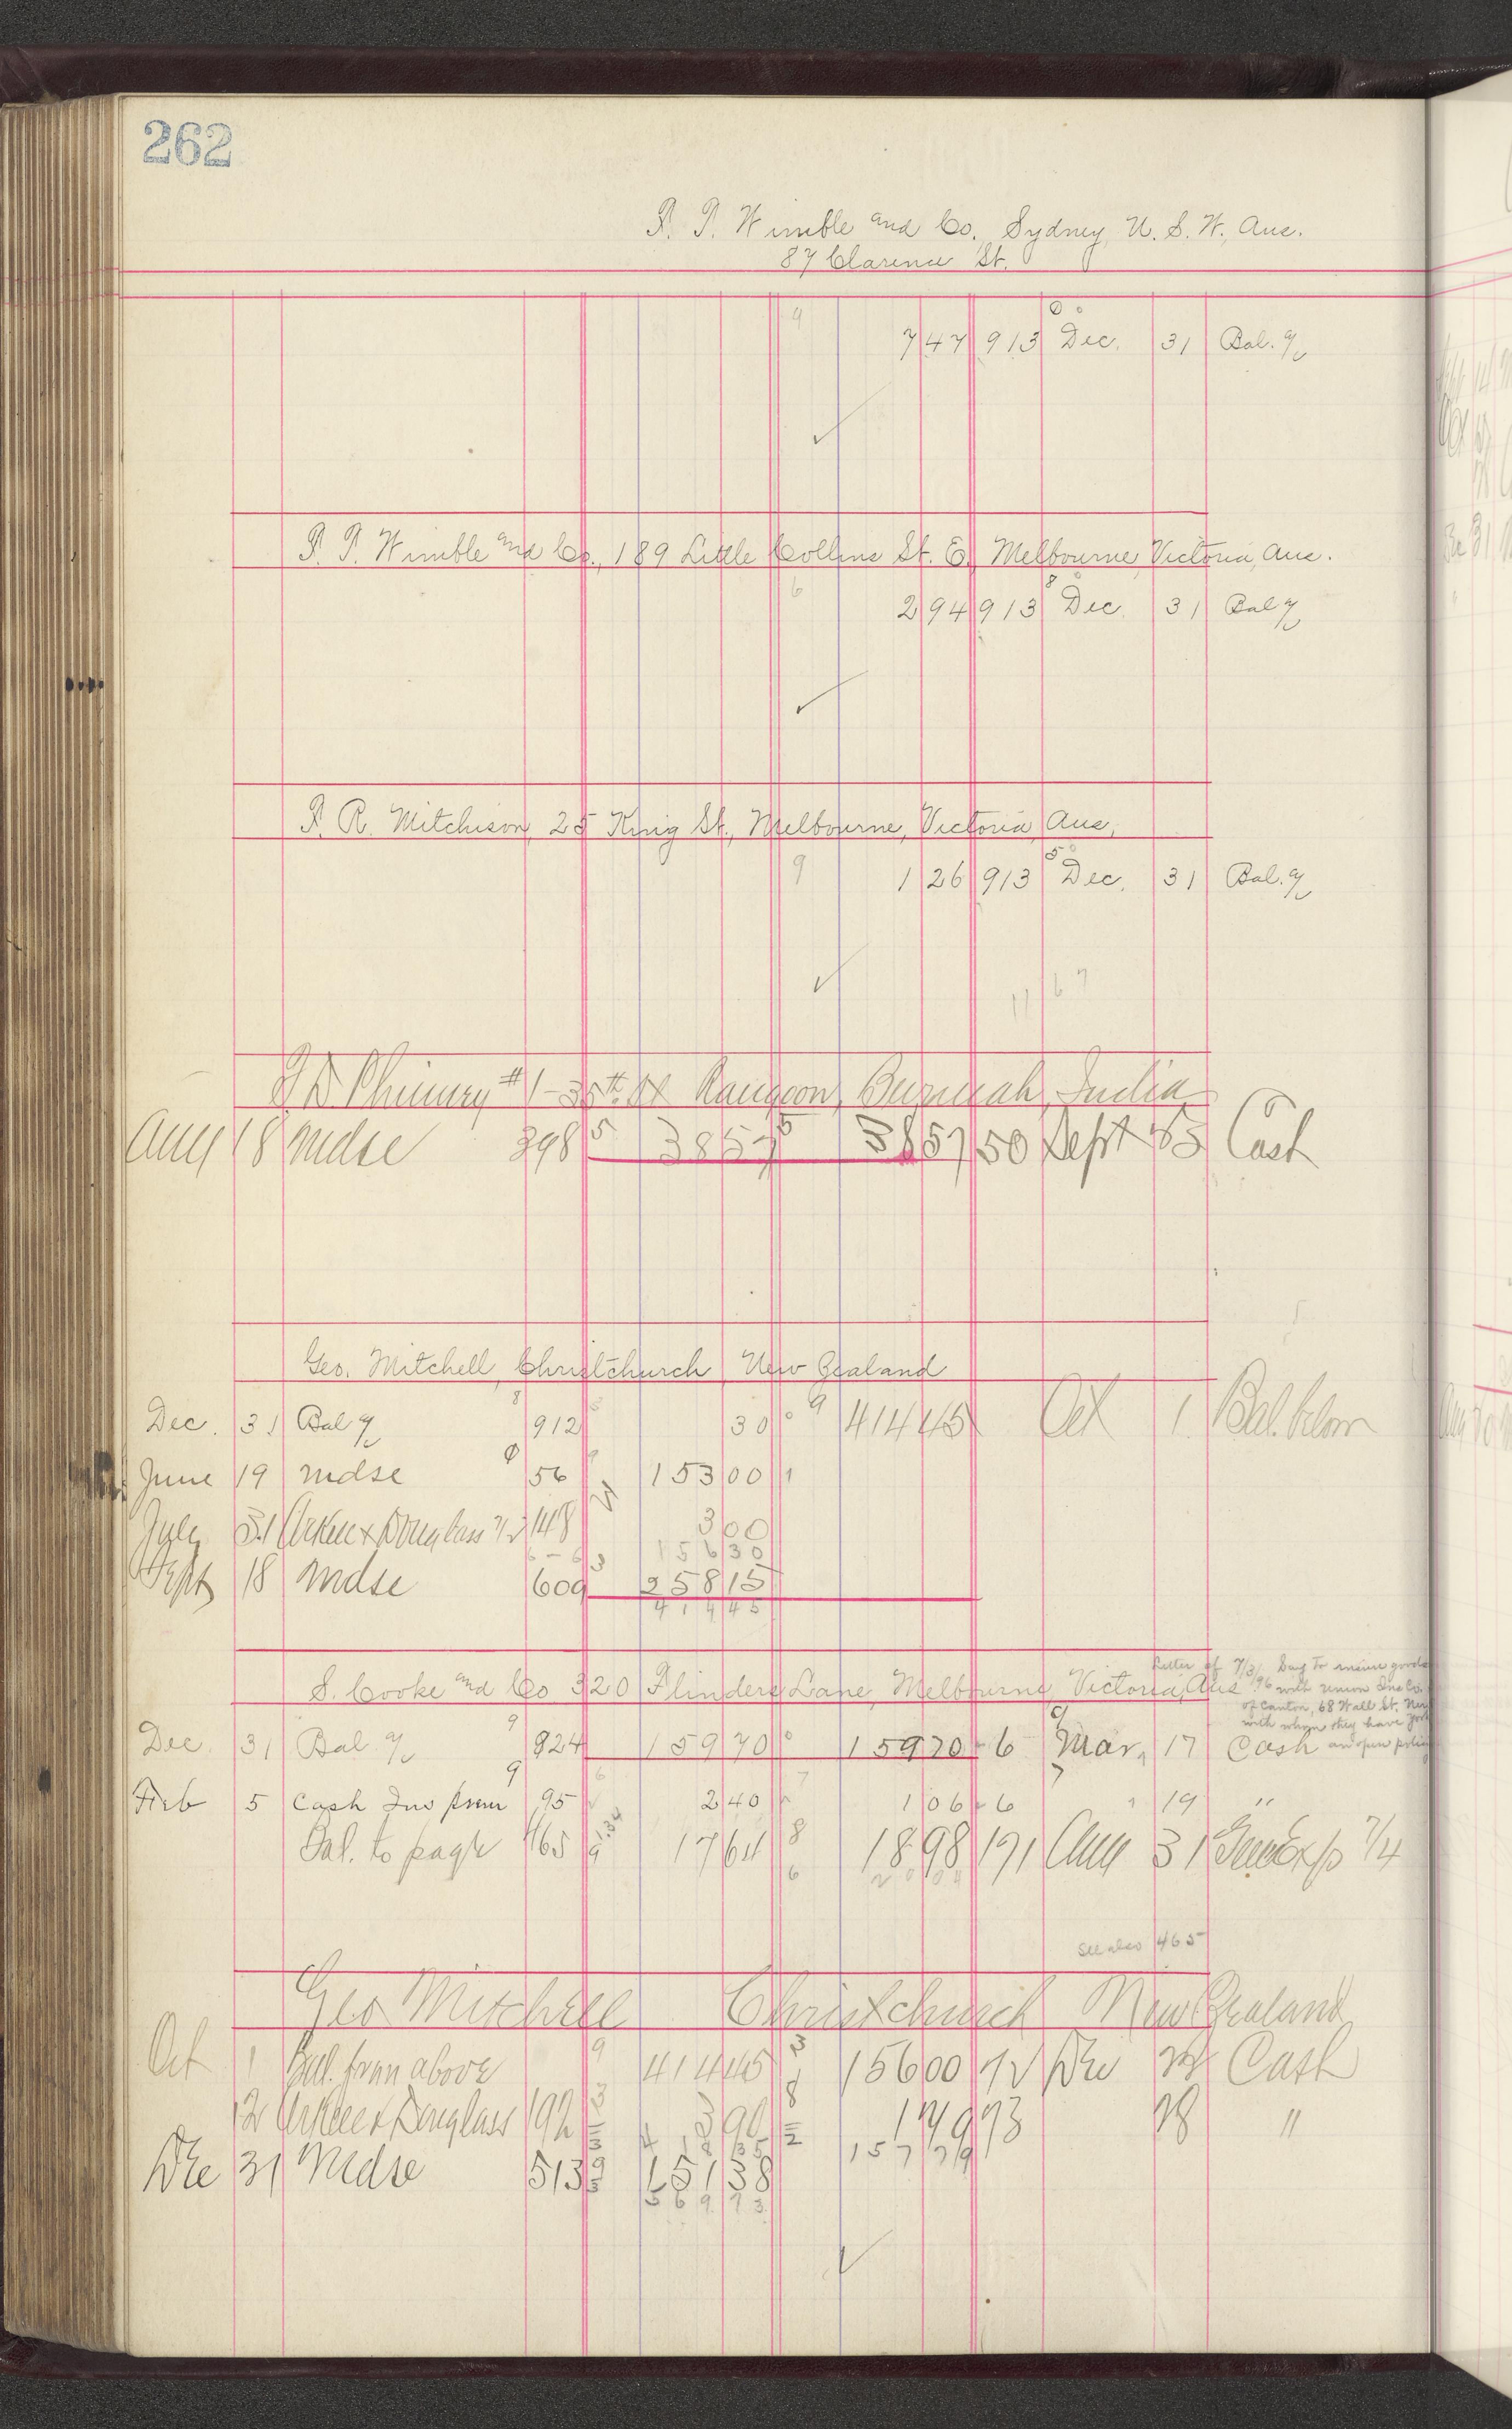 262
F. T. Wimble and Co., Sydney, N. S. W., Aus.
87 Clarence St.
9 7 47 913 Dec. 31 Bal. %
F. T. Wimble and Co., 189 Little Collins St. E., Melbourne, Victoria, Aus.
6 2 94 913 8 Dec. 31 Bal %
F. R. Mitchison, 25 King St., Melbourne, Victoria, Aus.
9 1 26 913 5 Dec. 31 Bal. %
11 67
Phinney #1-35th St Rangoon, Burmah, India
Aug 18 Mdse 398 5 385 7 5 385 7 50 Sept Cash
Geo. Mitchell, Christchurch, New Zealand
Dec. 31 Bal % 8 912 30 0 9 414 45 Oct 1 Bal. below
June 19 Mdse 56 153 00 1
July 31 Arkell & Douglass 7/2 148 3 00
156 30
Sept 18 Mdse 609 3 258 15
414 45
S. Cooke and Co 320 Flinders Lane, Melbourne, Victoria, Aus
Letter of 7/31/96 Say to insure goods
with Union Ins Co.
of Canton, 68 Wall St. New York
with whom they have
an open policy
Dec. 31 Bal % 9 824 159 70 0 159 70 6 Mar. 17 Cash
Feb 5 Cash Ins prem 9 95 2 40 1 06 6 " 19 "
Bal. to page 465 9 17 64 8 6 18 98 191 Aug 31 7/4
See also 465
Geo Mitchell Christchurch New Zealand
Oct 1 Bal. from above 9 414 45 3 156 00 72 Dec Cash
12 Arkell & Douglass 192 3 3 90 8 1 79 73 28 "
418 35 157 79
Dec 31 Mdse 513 9 151 38
569 73